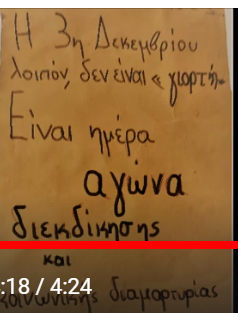 Η 3η Δεκεμβρίου
λοιπόν, δεν είναι « γιορτή»
Είναι ημέρα
αγώνα
διεκδίκησης
και
:18 / 4:24
κοινωνικής διαμαρτυρίας